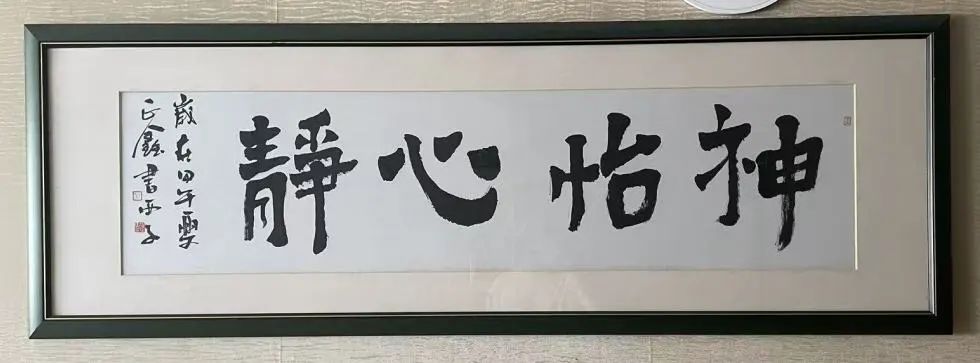 神怡心靜
歲在甲午夏
正鑫書